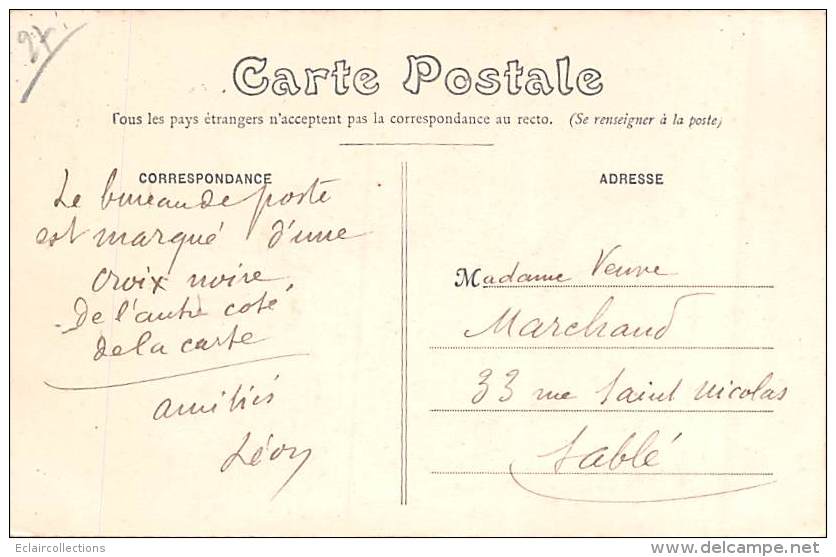 97.
Carte Postale
Tous les pays étrangers n'acceptent pas la correspondance au recto. (Se renseigner à la poste)
CORRESPONDANCE
Le bureau de poste
est marqué d'une
croix noire,
De l'autre coté,
de la carte
amitiés
Léon
ADRESSE
Madame Veuve
Marchand
33 rue Saint Nicolas
Sablé
Eclaircollections
©delcampe.net